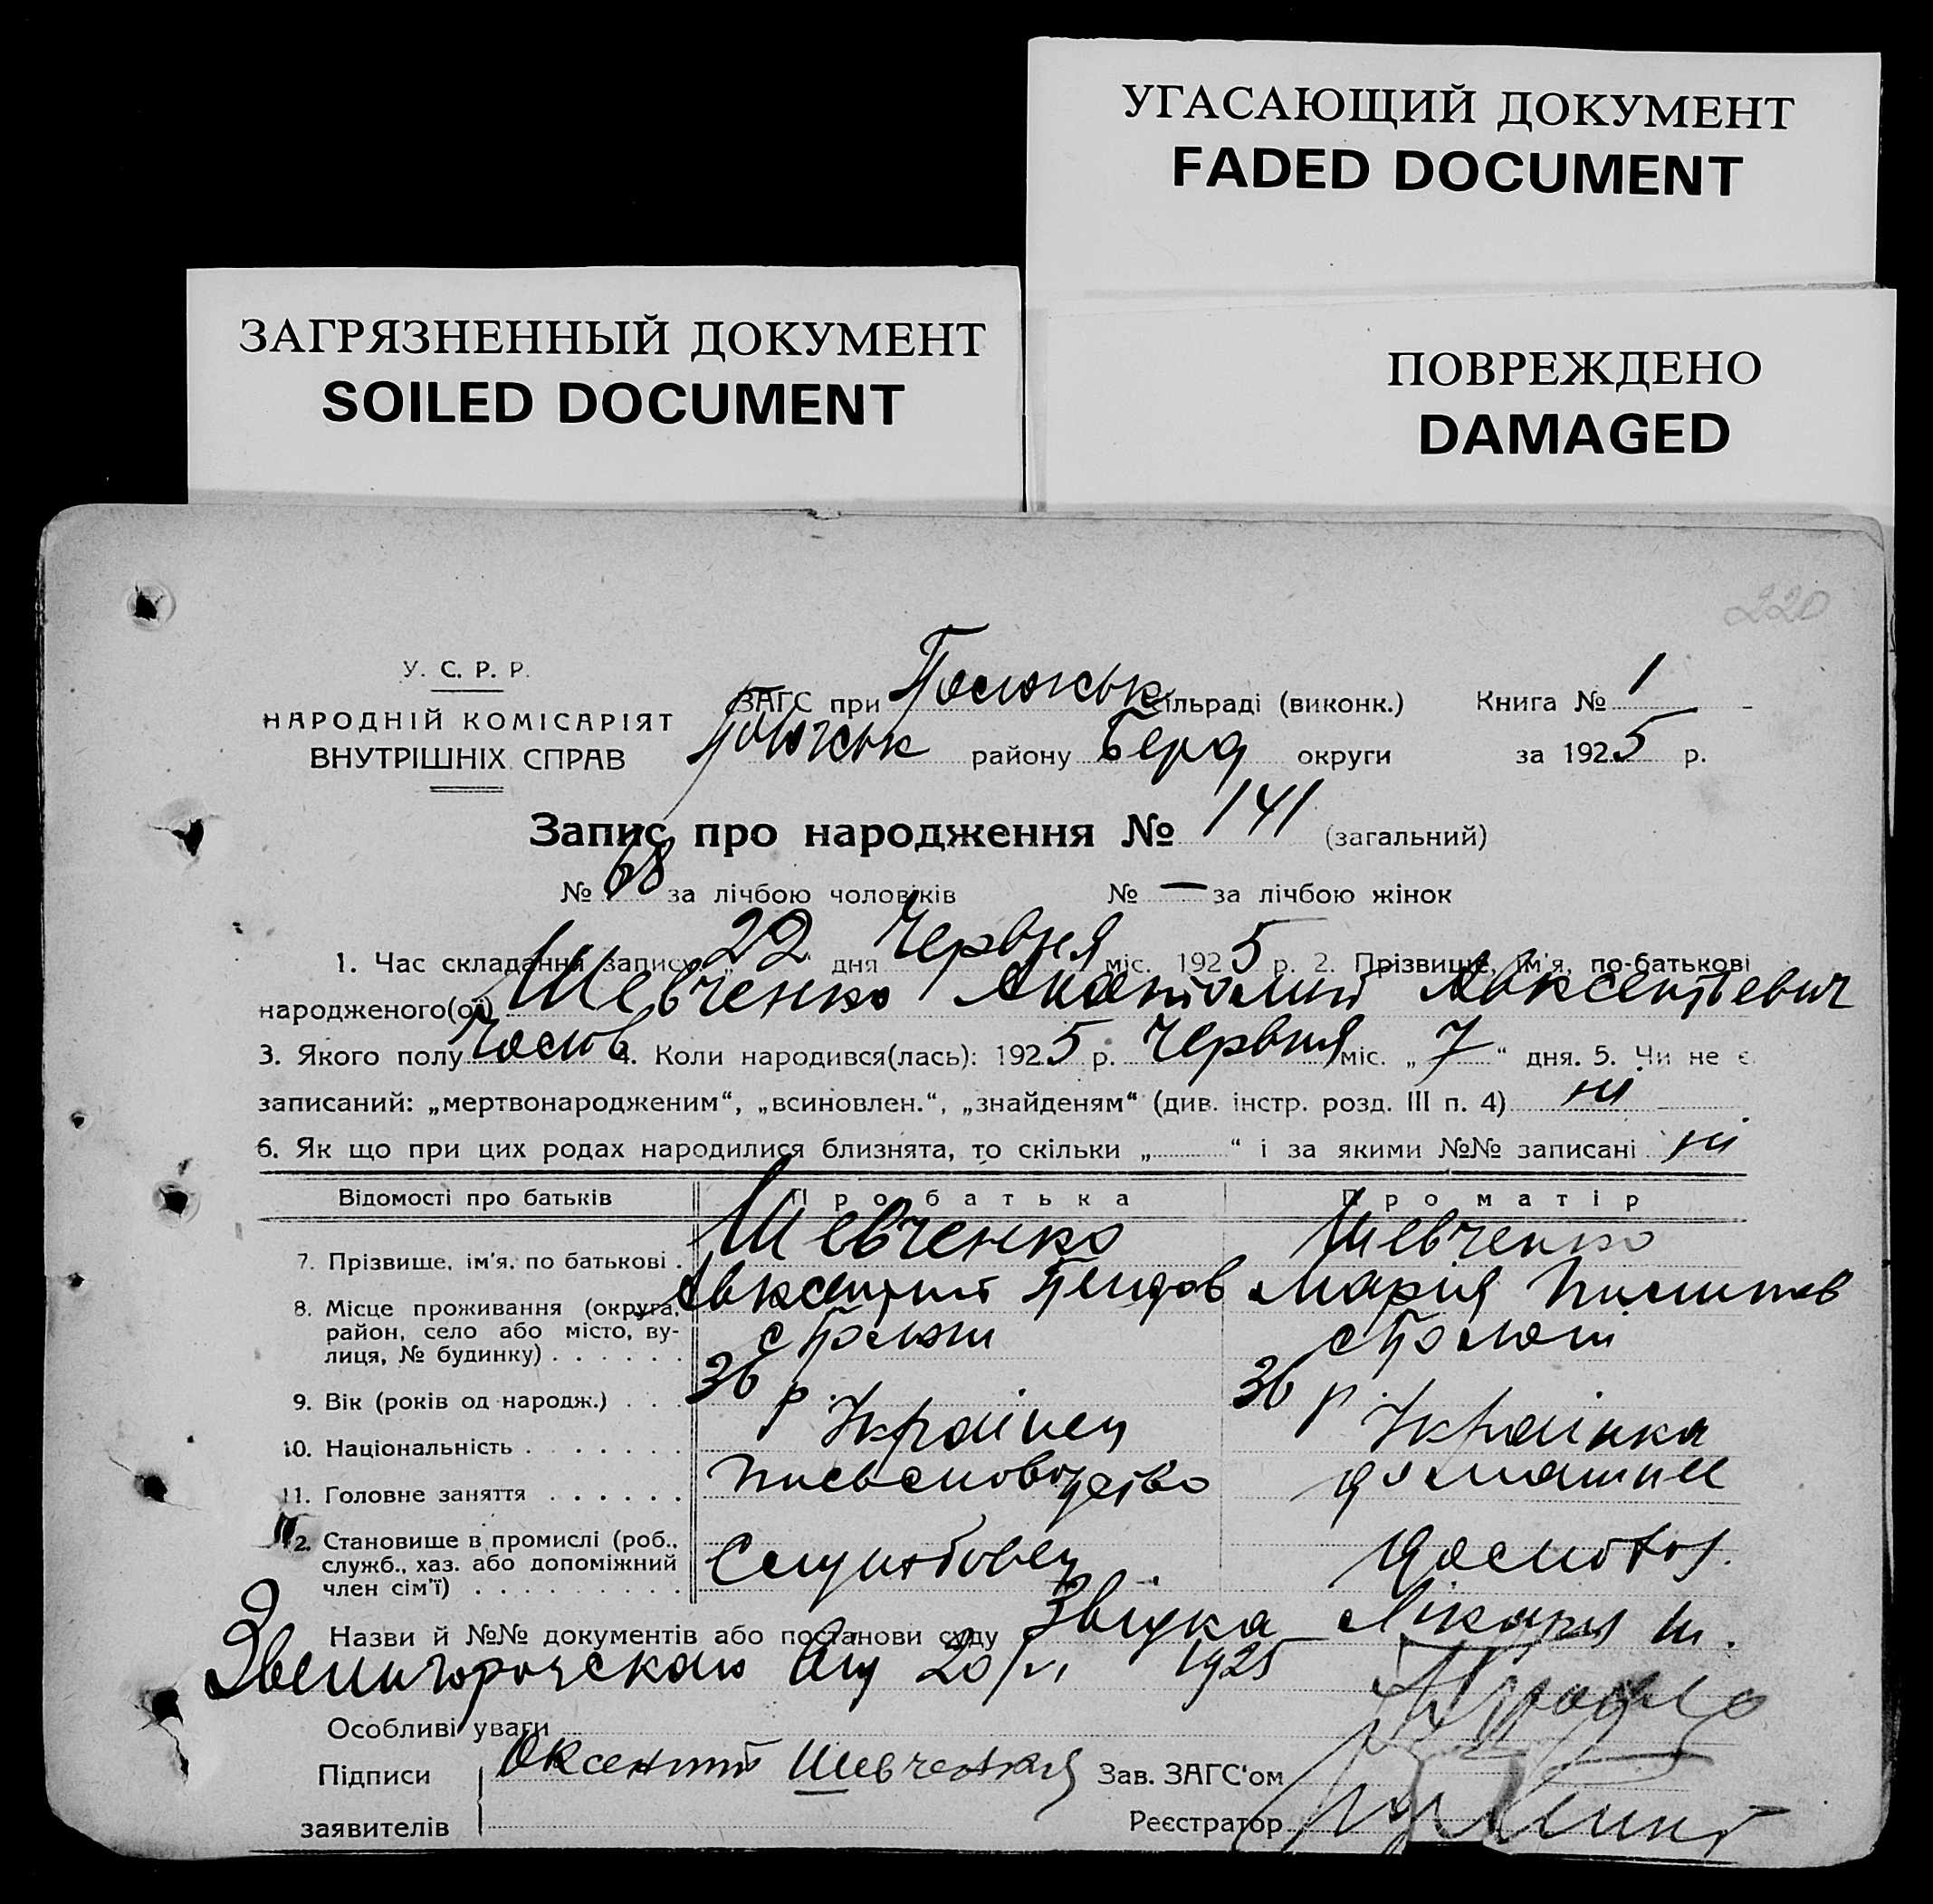 УГАСАЮЩИЙ ДОКУМЕНТ
FADED DOCUMENT
ЗАГРЯЗНЕННЫЙ ДОКУМЕНТ
SOILED DOCUMENT
ПОВРЕЖДЕНО
DAMAGED
220
У. С. Р. Р.
НАРОДНІЙ КОМІСАРІЯТ
ВНУТРІШНІХ СПРАВ
ЗАГС при сільраді (виконк.) Книга № 1
району Берд округи за 1925 р.
Запис про народження № 141 (загальний)
№ 68 за лічбою чоловіків № — за лічбою жінок
1. Час складання запису „22“ дня Червня міс. 1925 р. 2. Прізвище, ім'я, по-батькові
народженого(ої) Шевченко Анатолий Авксентьевич
3. Якого полу Чолов 4. Коли народився(лась): 1925 р. Червня міс. „7“ дня. 5. Чи не є
записаний: „мертвонародженим“, „всиновлен.“, „знайденям“ (див. інстр. розд. III п. 4) ні
6. Як що при цих родах народилися близнята, то скільки „ “ і за якими №№ записані ні
Відомості про батьків Про батька Про матір
7. Прізвище, ім'я, по батькові . Шевченко Шевченко
Авксентий Марія
8. Місце проживання (округа, район, село або місто, ву-
лиця, № будинку) . . . . . .
9. Вік (років од народж.) . . . 36 р 36 р
10. Національність . . . . . . . Українец Українка
11. Головне заняття . . . . . . Письмоводство домашнє
12. Становище в промислі (роб.,
служб., хаз. або допоміжний
член сім'ї) . . . . . . . . . Службовец
Назви й №№ документів або постанови суду Звідка Лікаря
20/VI 1925
Особливі уваги
Підписи Оксентий Шевченко Зав. ЗАГС'ом
заявителів Реєстратор